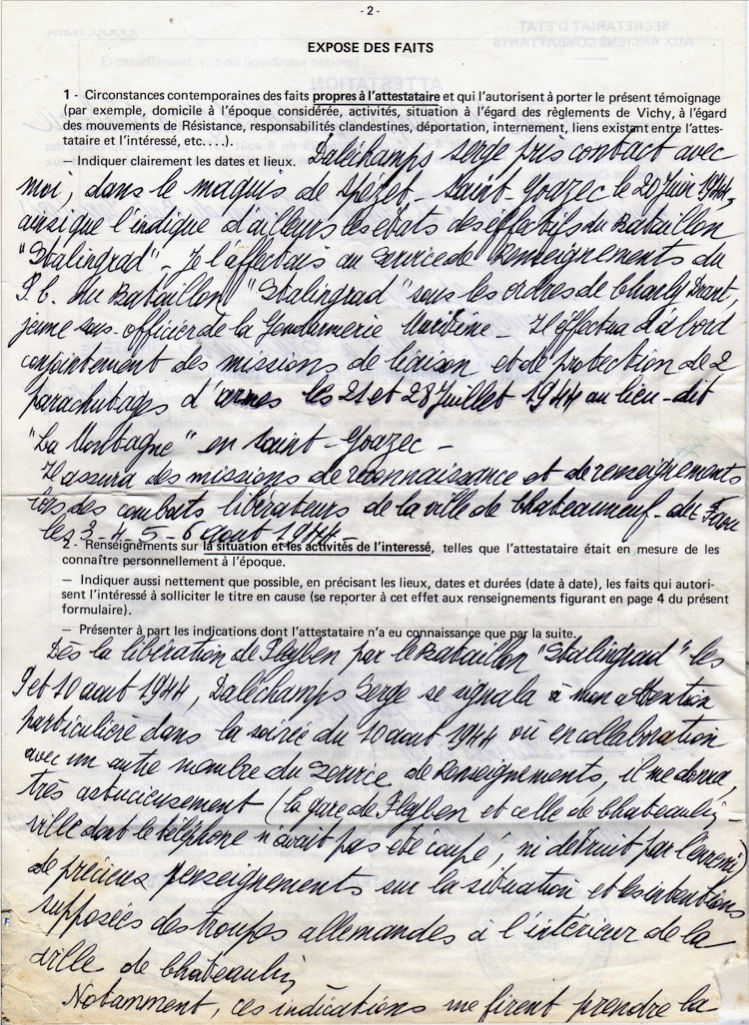 - 2 -
EXPOSE DES FAITS
1 - Circonstances contemporaines des faits propres à l'attestataire et qui l'autorisent à porter le présent témoignage
(par exemple, domicile à l'époque considérée, activités, situation à l'égard des règlements de Vichy, à l'égard
des mouvements de Résistance, responsabilités clandestines, déportation, internement, liens existant entre l'attes-
tataire et l'intéressé, etc....).
— Indiquer clairement les dates et lieux.
Daléchamps Serge pris contact avec
moi, dans le maquis de Spézet - Saint-Goazec le 20 Juin 1944,
ainsi que l'indique d'ailleurs les états des effectifs du Bataillon
"Stalingrad" - Je l'affectais au Service de Renseignements du
P.C. du Bataillon "Stalingrad" sous les ordres de Charly
jeune sous-officier de la Gendarmerie Maritime - Il effectua d'abord
conjointement des missions de liaison et de protection de 2
parachutages d'armes les 21 et 28 Juillet 1944 au lieu-dit
"La Montagne" en Saint-Goazec -
Il assura des missions de reconnaissance et de renseignements
lors des combats libérateurs de la ville de Chateauneuf-du-Faou
les 3-4-5-6 aout 1944 -
2 - Renseignements sur la situation et les activités de l'interessé, telles que l'attestataire était en mesure de les
connaître personnellement à l'époque.
— Indiquer aussi nettement que possible, en précisant les lieux, dates et durées (date à date), les faits qui autori-
sent l'intéressé à solliciter le titre en cause (se reporter à cet effet aux renseignements figurant en page 4 du présent
formulaire).
— Présenter à part les indications dont l'attestataire n'a eu connaissance que par la suite.
Dès la libération de Pleyben par le Bataillon "Stalingrad" les
9 et 10 aout 1944, Daléchamps Serge se signala à mon attention
particulière dans la soirée du 10 aout 1944 où en collaboration
avec un autre membre du Service de Renseignements, il me donna,
très astucieusement (la gare de Pleyben et celle de Chateaulin -
ville dont le téléphone n'avait pas été coupé, ni détruit par l'ennemi)
de précieux renseignements sur la situation et les intentions
supposées des troupes allemandes à l'intérieur de la
ville de Chateaulin,
Notamment, ces indications me firent prendre la